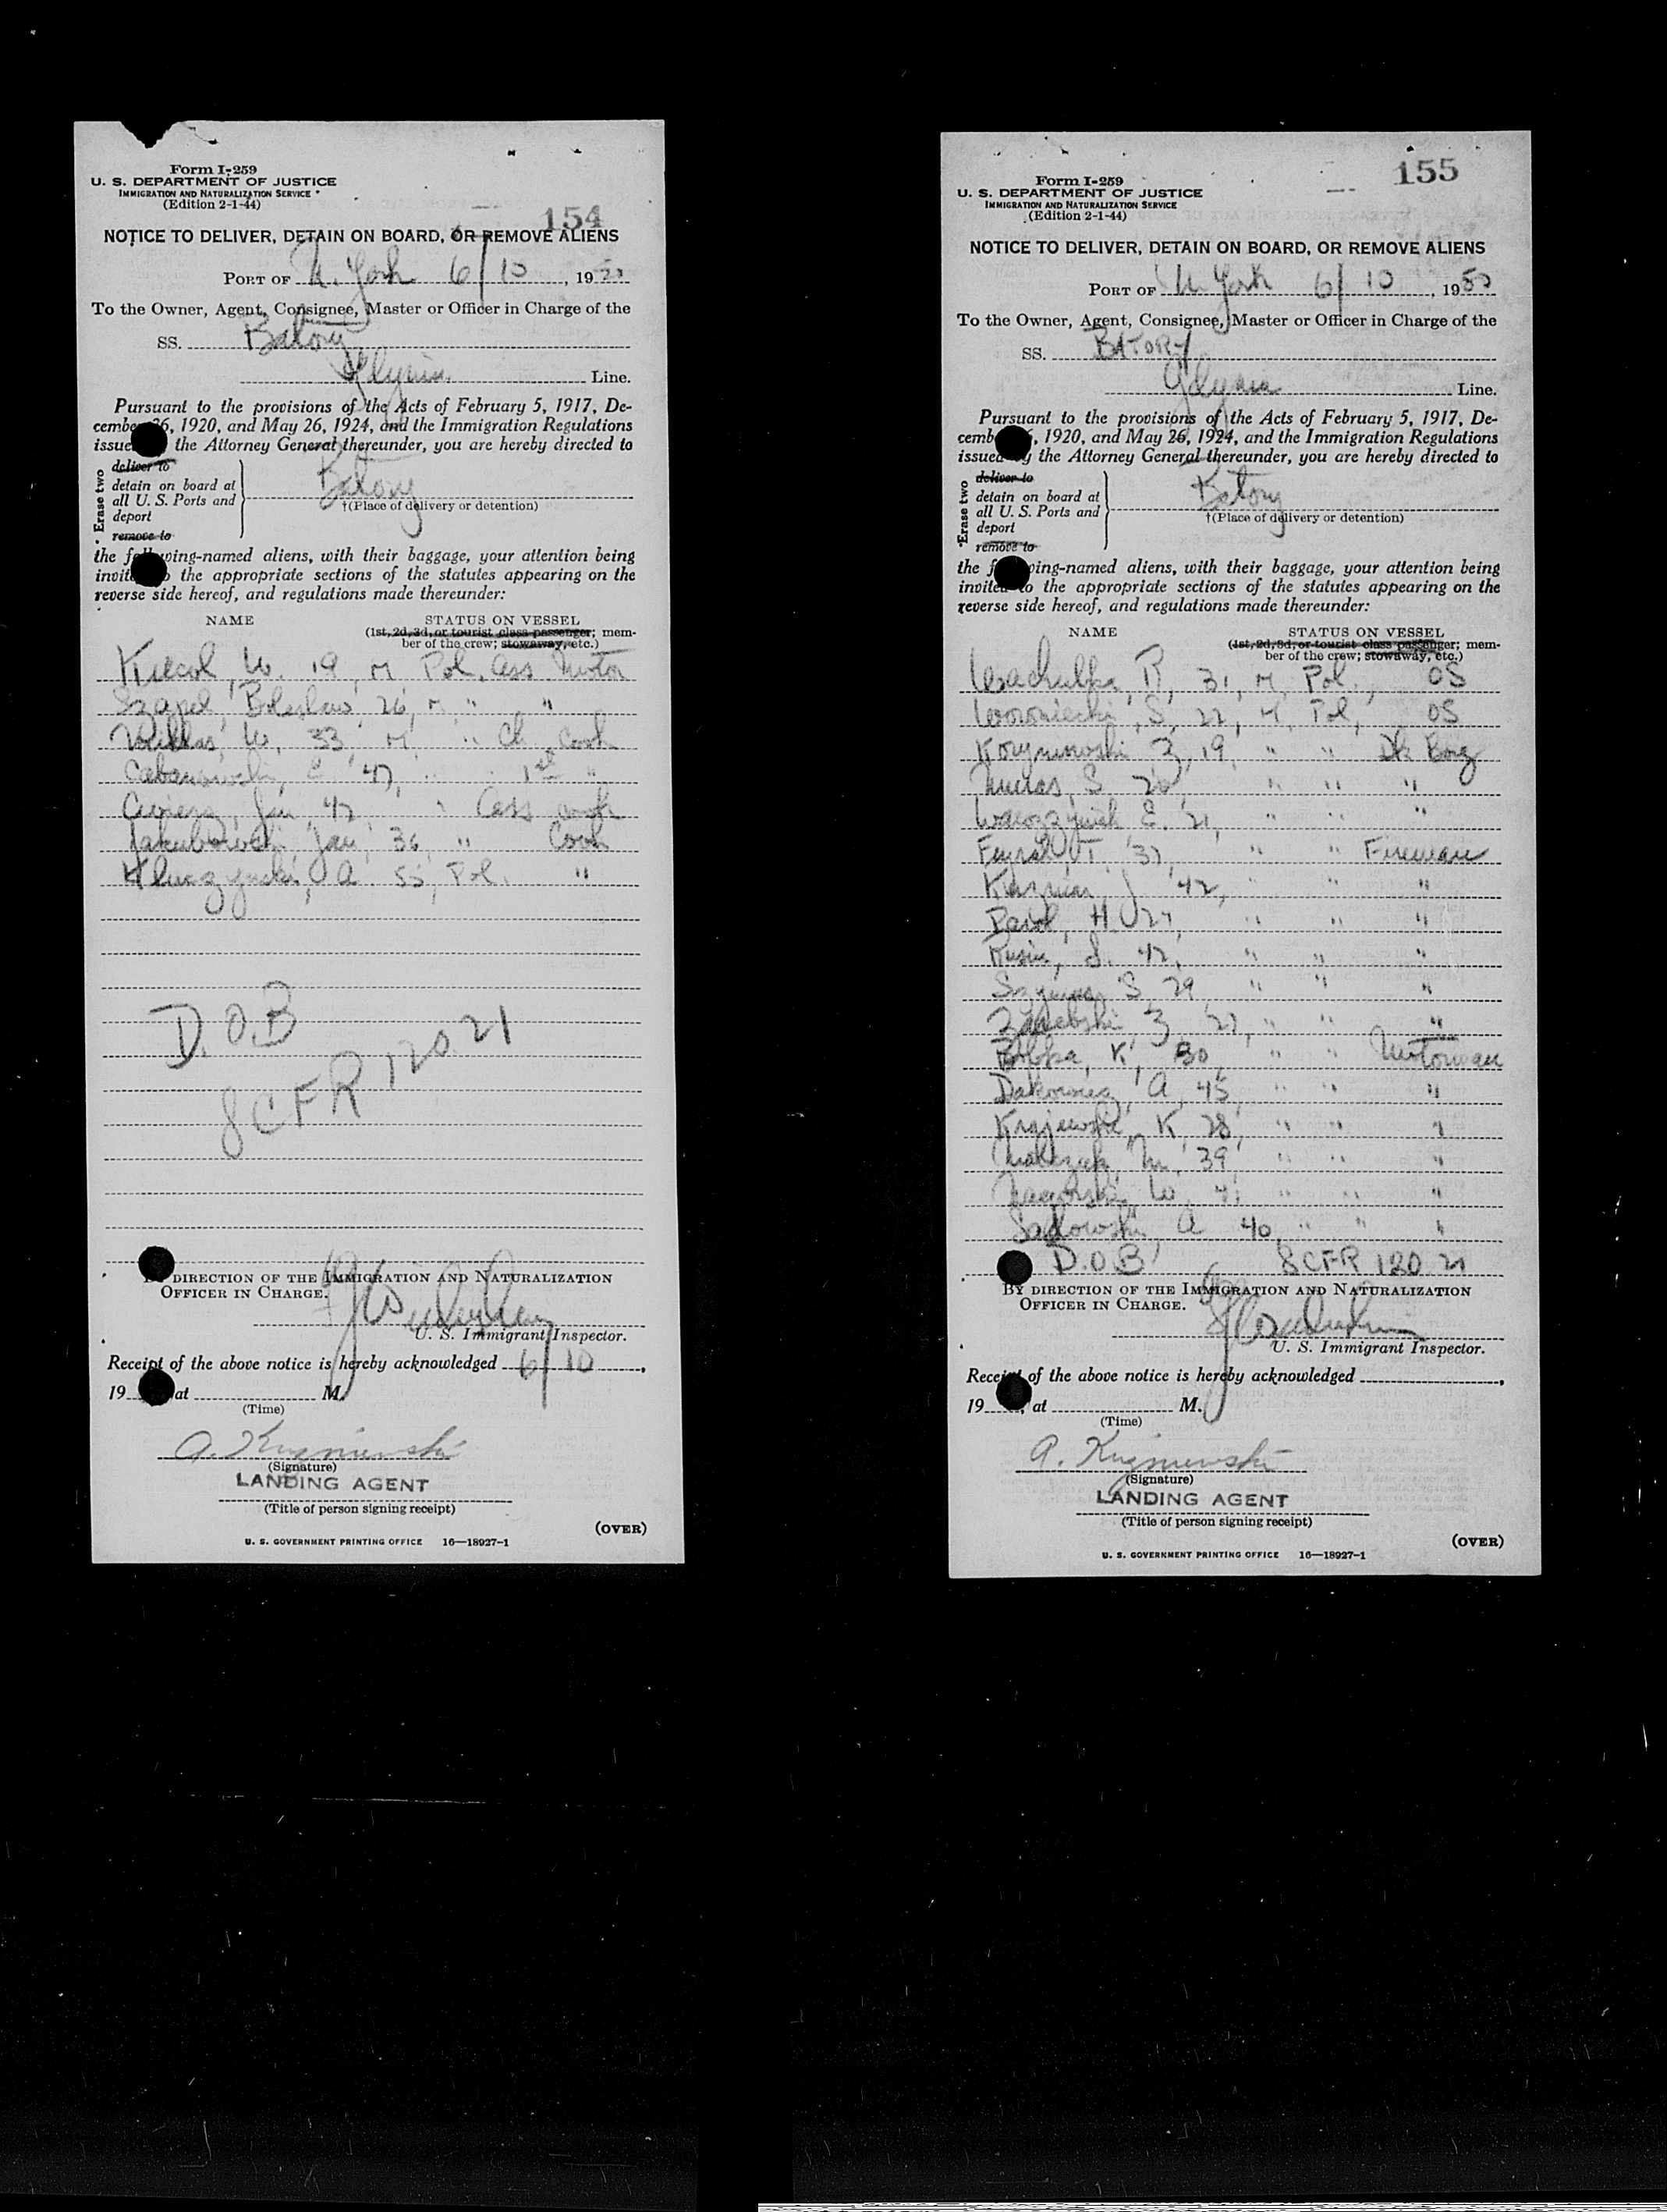 Form I-259
U. S. DEPARTMENT OF JUSTICE
IMMIGRATION AND NATURALIZATION SERVICE
(Edition 2-1-44)
154
NOTICE TO DELIVER, DETAIN ON BOARD, OR REMOVE ALIENS
PORT OF N. York 6/10, 1950
To the Owner, Agent, Consignee, Master or Officer in Charge of the
SS. Batory
Gdynia Line.
Pursuant to the provisions of the Acts of February 5, 1917, De-
cember 26, 1920, and May 26, 1924, and the Immigration Regulations
issued the Attorney General thereunder, you are hereby directed to
* Erase two
deliver to
detain on board at
all U. S. Ports and
deport
remove to
Batory
†(Place of delivery or detention)
the following-named aliens, with their baggage, your attention being
invited to the appropriate sections of the statutes appearing on the
reverse side hereof, and regulations made thereunder:
NAME STATUS ON VESSEL
(1st, 2d, 3d, or tourist class passenger; mem-
ber of the crew; stowaway, etc.)
W. 19, M Pol. Ass
Boleslaw 26, M " "
W, 33, M " Ch. Cook
47, 1st "
Jan, 42 " Ass cook
Jakubowski Jan, 36 " Cook
Kluczynski, A. 55, Pol. "
D.O.B
8CFR 120.21
BY DIRECTION OF THE IMMIGRATION AND NATURALIZATION
OFFICER IN CHARGE.
U. S. Immigrant Inspector.
Receipt of the above notice is hereby acknowledged 6/10,
19 at M.
(Time)
A. Kuzniewski
(Signature)
LANDING AGENT
(Title of person signing receipt)
(OVER)
U. S. GOVERNMENT PRINTING OFFICE 16—18927-1
155
Form I-259
U. S. DEPARTMENT OF JUSTICE
IMMIGRATION AND NATURALIZATION SERVICE
(Edition 2-1-44)
NOTICE TO DELIVER, DETAIN ON BOARD, OR REMOVE ALIENS
PORT OF N York 6/10, 1950
To the Owner, Agent, Consignee, Master or Officer in Charge of the
SS. BATORY
Gdynia Line.
Pursuant to the provisions of the Acts of February 5, 1917, De-
cember , 1920, and May 26, 1924, and the Immigration Regulations
issued by the Attorney General thereunder, you are hereby directed to
*Erase two
deliver to
detain on board at
all U. S. Ports and
deport
remove to
Batory
†(Place of delivery or detention)
the following-named aliens, with their baggage, your attention being
invited to the appropriate sections of the statutes appearing on the
reverse side hereof, and regulations made thereunder:
NAME STATUS ON VESSEL
(1st, 2d, 3d, or tourist class passenger; mem-
ber of the crew; stowaway, etc.)
Wachulka, R, 31, M, Pol., OS
Woroniecki, S, 22, M, Pol, OS
Z, 19, " " Dk Boy
S 20 " " "
E. 21, " " "
T. 37, " " Fireman
J 42, " " "
H 27, " " "
Rusin, S. 42, " " "
S, 29, " " "
Z 27, " " "
K, 30, " " Motorman
A, 45, " " "
Krajewski, K, 28, " " "
M, 39, " " "
W, " " "
Sadowski, A 40, " " "
D.O.B 8CFR 120.21
BY DIRECTION OF THE IMMIGRATION AND NATURALIZATION
OFFICER IN CHARGE.
U. S. Immigrant Inspector.
Receipt of the above notice is hereby acknowledged ,
19 , at M.
(Time)
A. Kuzniewski
(Signature)
LANDING AGENT
(Title of person signing receipt)
(OVER)
U. S. GOVERNMENT PRINTING OFFICE 16—18927-1